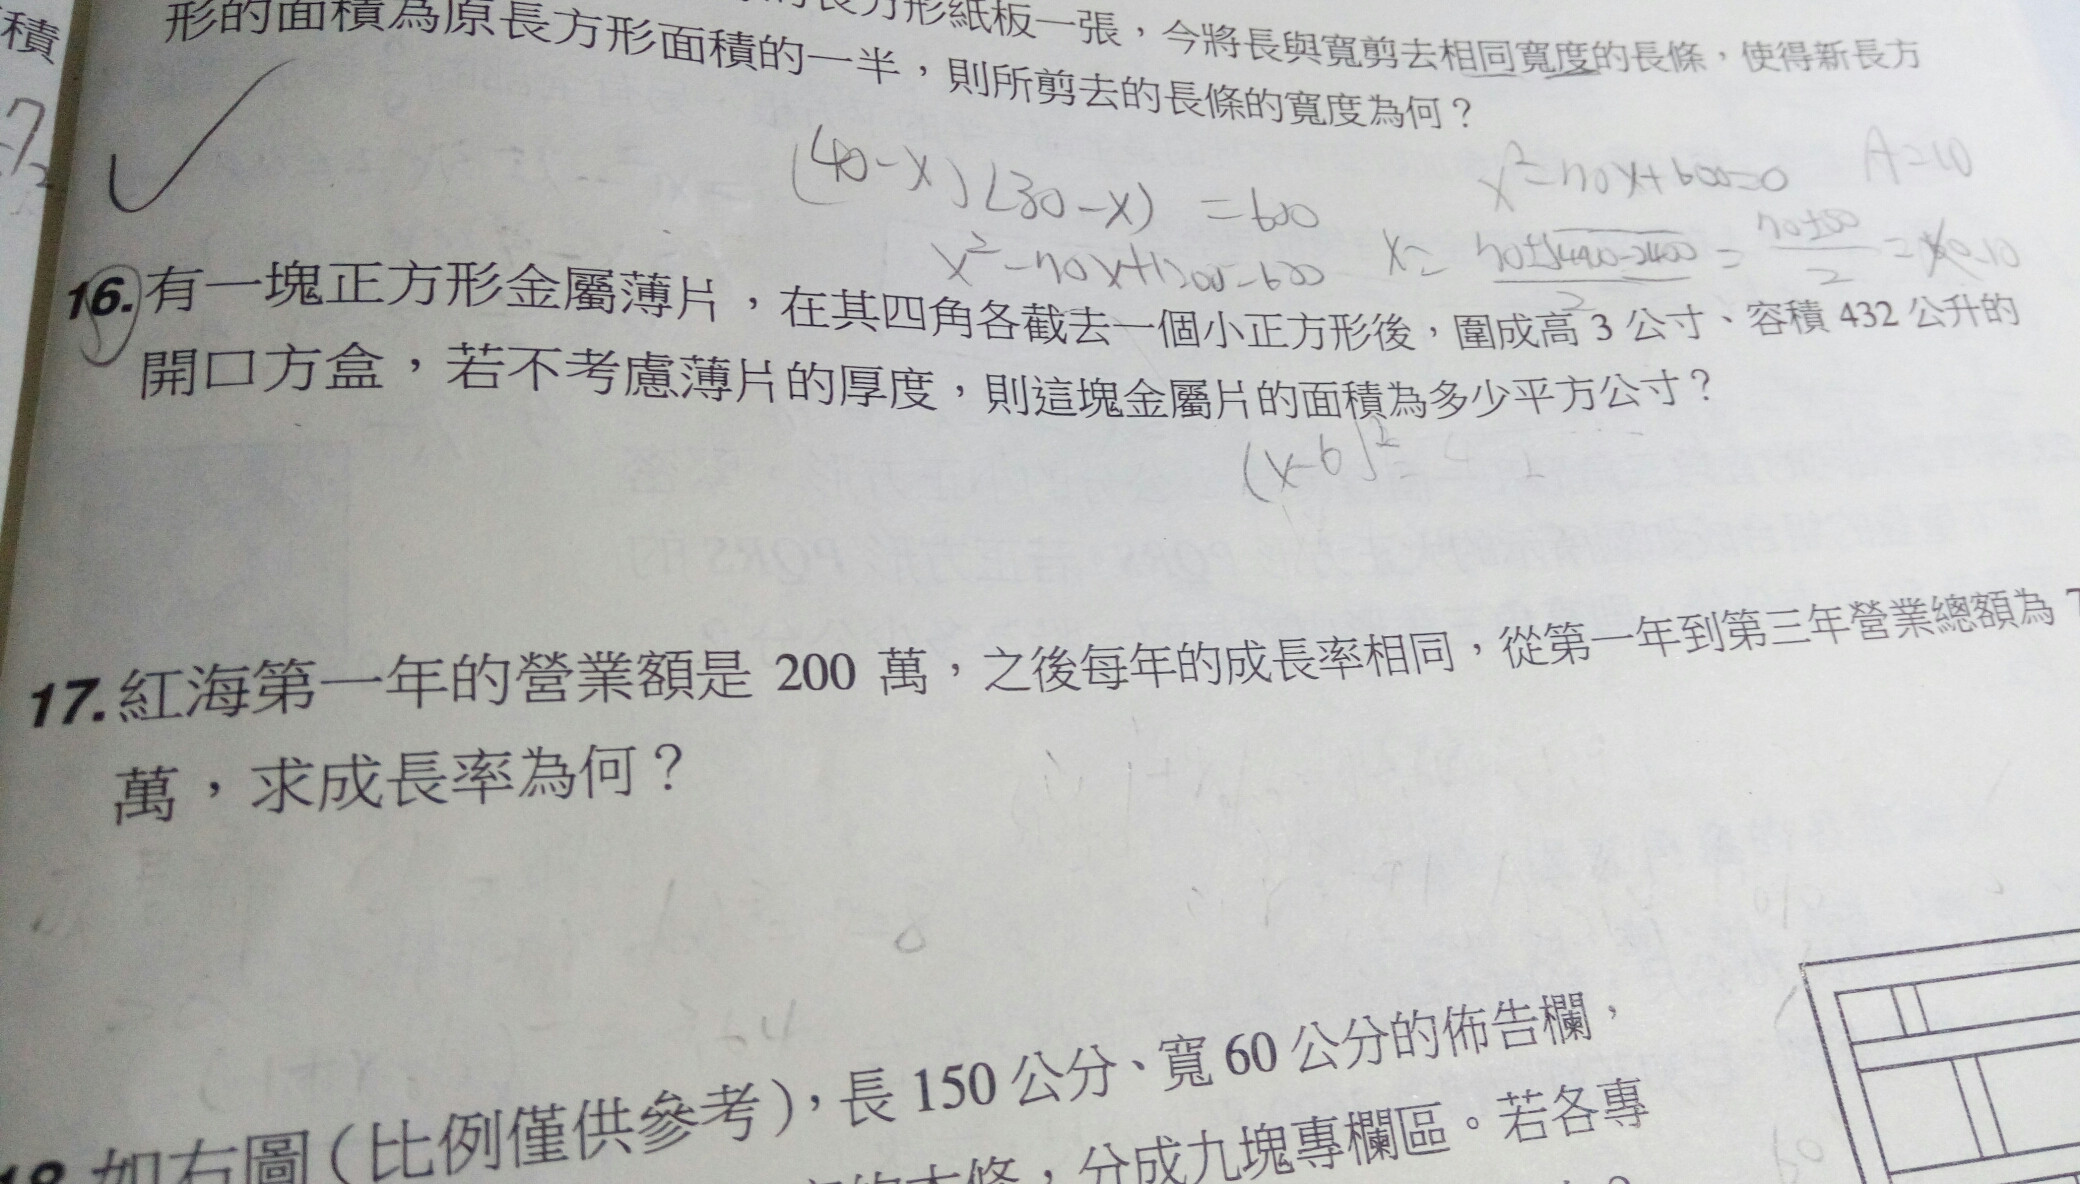 積
長方形紙板一張，今將長與寬剪去相同寬度的長條，使得新長方
形的面積為原長方形面積的一半，則所剪去的長條的寬度為何？
(40-x)(30-x) = 600
x²-70x+1200-600
x²-70x+600=0
A=10
16. 有一塊正方形金屬薄片，在其四角各截去一個小正方形後，圍成高 3 公寸、容積 432 公升的
開口方盒，若不考慮薄片的厚度，則這塊金屬片的面積為多少平方公寸？
(x-6)²=
17. 紅海第一年的營業額是 200 萬，之後每年的成長率相同，從第一年到第三年營業總額為
萬，求成長率為何？
18. 如右圖(比例僅供參考)，長 150 公分、寬 60 公分的佈告欄，
木條，分成九塊專欄區。若各專